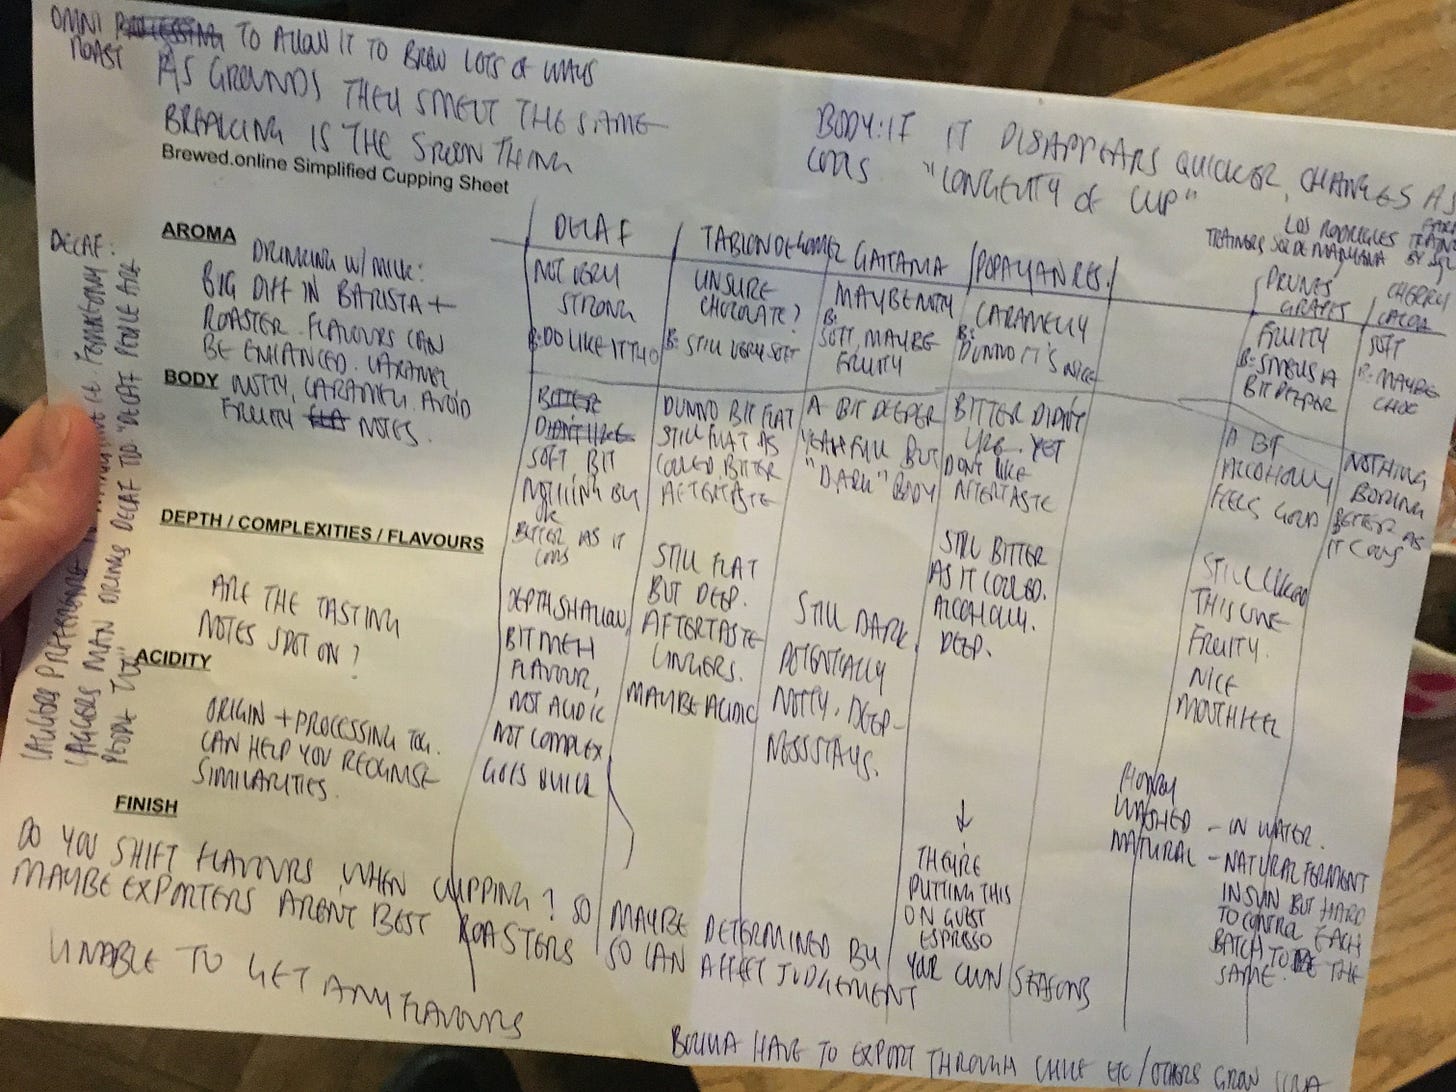 OMNI TO ALLOW IT TO BREW LOTS OF WAYS
ROAST
AS GROUNDS THEY SMELT THE SAME
BREAKING IS THE SPOON THING
Brewed.online Simplified Cupping Sheet
BODY: IF IT DISAPPEARS QUICKER, CHANGES AS
COOLS "LONGEVITY OF CUP"
DECAF:
PEOPLE TOO"
AROMA
DRINKING W/ MILK:
BIG DIFF IN BARISTA +
ROASTER. FLAVOURS CAN
BE ENHANCED. CARAMEL
BODY
NUTTY, CARAMEL. AVOID
FRUITY NOTES.
DEPTH / COMPLEXITIES / FLAVOURS
ARE THE TASTING
NOTES SPOT ON?
ACIDITY
ORIGIN + PROCESSING TOG.
CAN HELP YOU RECOGNISE
SIMILARITIES.
FINISH
DECAF
NOT VERY
STRONG
B: DO LIKE IT THO
BITTER
DIDN'T LIKE
SOFT BIT
NOTHING BUT
OK
BITTER AS IT
COOLS
DEPTH SHALLOW,
BIT MEH
FLAVOUR,
NOT ACIDIC
NOT COMPLEX
GOES QUICK
UNSURE
CHOCOLATE?
B: STILL VERY SOFT
DUNNO BIT FLAT
STILL FLAT AS
COOLED BITTER
AFTERTASTE
STILL FLAT
BUT DEEP.
AFTERTASTE
LINGERS.
MAYBE ACIDIC
GAITANIA
MAYBE NUTTY
B:
SOFT, MAYBE
FRUITY
A BIT DEEPER
YEAH FULL BUT
"DARK" BODY
STILL DARK,
POTENTIALLY
NUTTY, DEEP-
NESS STAYS.
POPAYAN RES.
CARAMELLY
B:
DUNNO IT'S NICE
BITTER DIDN'T
LIKE... YET
DON'T LIKE
AFTERTASTE
STILL BITTER
AS IT COOLED.
ALCOHOLY.
DEEP.
↓
THEY'RE
PUTTING THIS
ON GUEST
ESPRESSO
LOS RODRIGUES
PRUNES
GRAPES
FRUITY
B: SMELLS A
BIT DEEPER
A BIT
ALCOHOLY
FEELS GOOD
STILL LIKED
THIS ONE
FRUITY.
NICE
MOUTHFEEL
CHERRY
CACOA
SOFT
B: MAYBE
CHOC
NOTHING
BORING
BETTER AS
IT COOLS
HONEY
WASHED - IN WATER.
NATURAL - NATURAL FERMENT
IN SUN BUT HARD
TO CONTROL EACH
BATCH TO BE THE
SAME.
DO YOU SHIFT FLAVOURS WHEN CUPPING? SO MAYBE DETERMINED BY YOUR OWN SEASONS
MAYBE EXPORTERS ARENT BEST ROASTERS SO CAN AFFECT JUDGEMENT
UNABLE TO GET ANY FLAVOURS
BOLIVIA HAVE TO EXPORT THROUGH CHILE ETC / OTHERS GROW